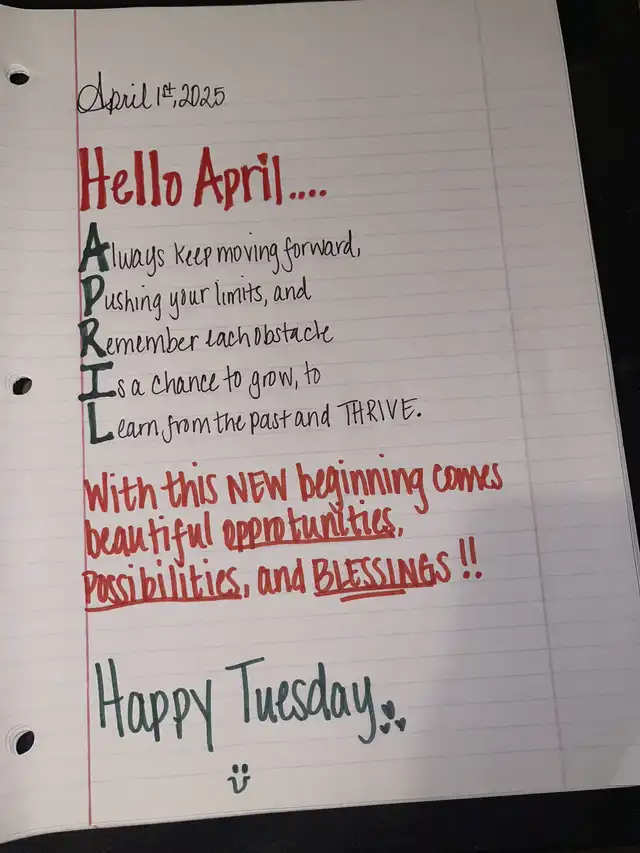 April 1st, 2025
Hello April....
Always keep moving forward,
Pushing your limits, and
Remember each obstacle
Is a chance to grow, to
Learn from the past and THRIVE.
With this NEW beginning comes
beautiful opprotunities,
possibilities, and BLESSINGS !!
Happy Tuesday